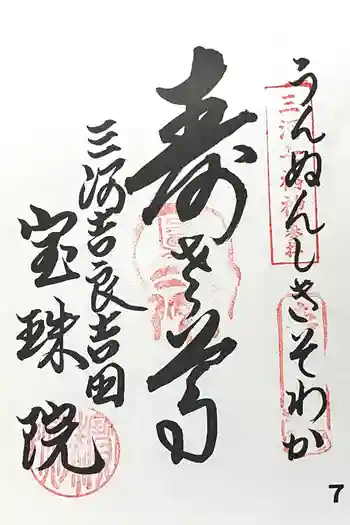 うんぬんしきそわか
寿老尊
三河吉良吉田
宝珠院
7